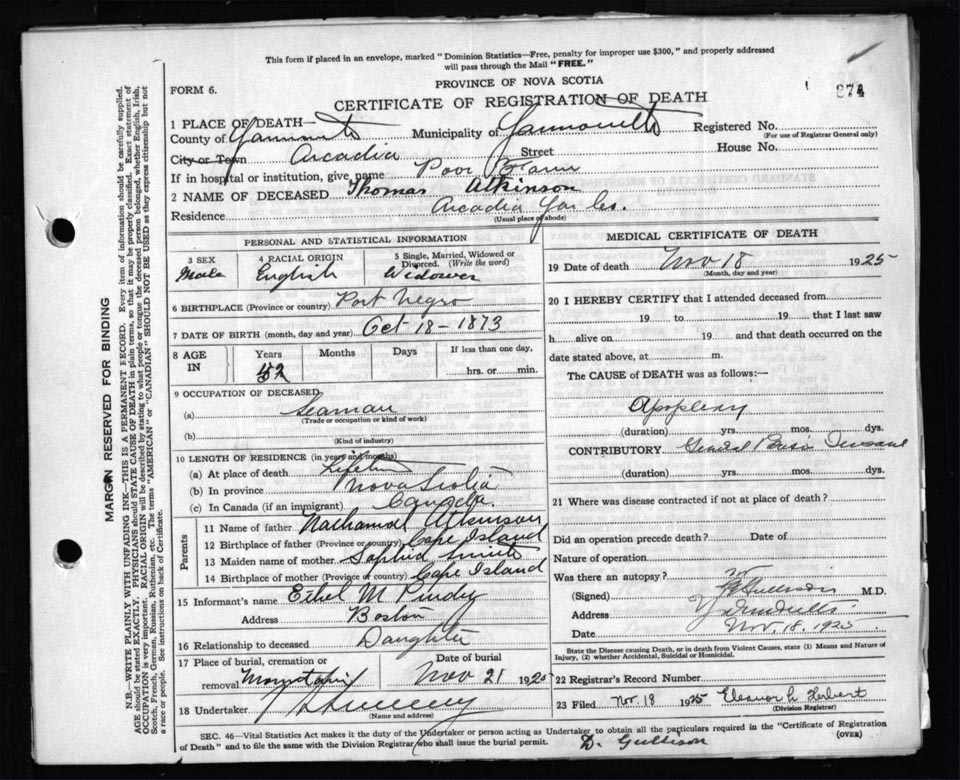 This form if placed in an envelope, marked "Dominion Statistics—Free, penalty for improper use $300," and properly addressed
will pass through the Mail "FREE."
PROVINCE OF NOVA SCOTIA
FORM 6.
874
CERTIFICATE OF REGISTRATION OF DEATH
1 PLACE OF DEATH—
County of Yarmouth Municipality of Yarmouth Registered No.
(For use of Registrar General only)
City or Town Arcadia Street House No.
If in hospital or institution, give name Poor Farm
2 NAME OF DECEASED Thomas Atkinson
Residence Arcadia Yar Co.
(Usual place of abode)
PERSONAL AND STATISTICAL INFORMATION
3 SEX 4 RACIAL ORIGIN 5 Single, Married, Widowed or
Divorced. (Write the word)
Male English Widower
6 BIRTHPLACE (Province or country) Port Negro
7 DATE OF BIRTH (month, day and year) Oct 18-1873
8 AGE IN Years Months Days If less than one day,
52 hrs. or min.
9 OCCUPATION OF DECEASED
(a) Seaman
(Trade or occupation or kind of work)
(b)
(Kind of industry)
10 LENGTH OF RESIDENCE (in years and months)
(a) At place of death Lifetime
(b) In province Nova Scotia
(c) In Canada (if an immigrant) Canada.
Parents
11 Name of father Nathanial Atkinson
12 Birthplace of father (Province or country) Cape Island
13 Maiden name of mother Sophia Smith
14 Birthplace of mother (Province or country) Cape Island
15 Informant's name Ethel M
Address Boston
16 Relationship to deceased Daughter
17 Place of burial, cremation or Date of burial
removal Nov 21 1925
18 Undertaker
(Name and address)
MEDICAL CERTIFICATE OF DEATH
19 Date of death Nov 18 1925
(Month, day and year)
20 I HEREBY CERTIFY that I attended deceased from
19 to 19 that I last saw
h alive on 19 and that death occurred on the
date stated above, at m.
The CAUSE of DEATH was as follows:—
Apoplexy
(duration) yrs. mos. dys.
CONTRIBUTORY Insane
(duration) yrs. mos. dys.
21 Where was disease contracted if not at place of death?
Did an operation precede death? Date of
Nature of operation
Was there an autopsy?
(Signed) M.D.
Address
Date Nov. 18. 1925
State the Disease causing Death, or in death from Violent Causes, state (1) Means and Nature of
Injury, (2) whether Accidental, Suicidal or Homicidal.
22 Registrar's Record Number
23 Filed Nov. 18 1925 Eleanor L Herbert
(Division Registrar)
SEC. 46—Vital Statistics Act makes it the duty of the Undertaker or person acting as Undertaker to obtain all the particulars required in the "Certificate of Registration
of Death" and to file the same with the Division Registrar who shall issue the burial permit.
(OVER)
MARGIN RESERVED FOR BINDING
N.B.—WRITE PLAINLY WITH UNFADING INK—THIS IS A PERMANENT RECORD. Every item of information should be carefully supplied.
AGE should be stated EXACTLY. PHYSICIANS should STATE CAUSE OF DEATH in plain terms, so that it may be properly classified. Exact statement of
OCCUPATION is very important. RACIAL ORIGIN will be described by stating to what people or tongue the deceased person belonged, whether English, Irish,
Scotch, French, German, Russian, Ruthenian, etc. The terms "AMERICAN" or "CANADIAN" SHOULD NOT BE USED as they express citizenship but not
a race or people. See instructions on back of Certificate.